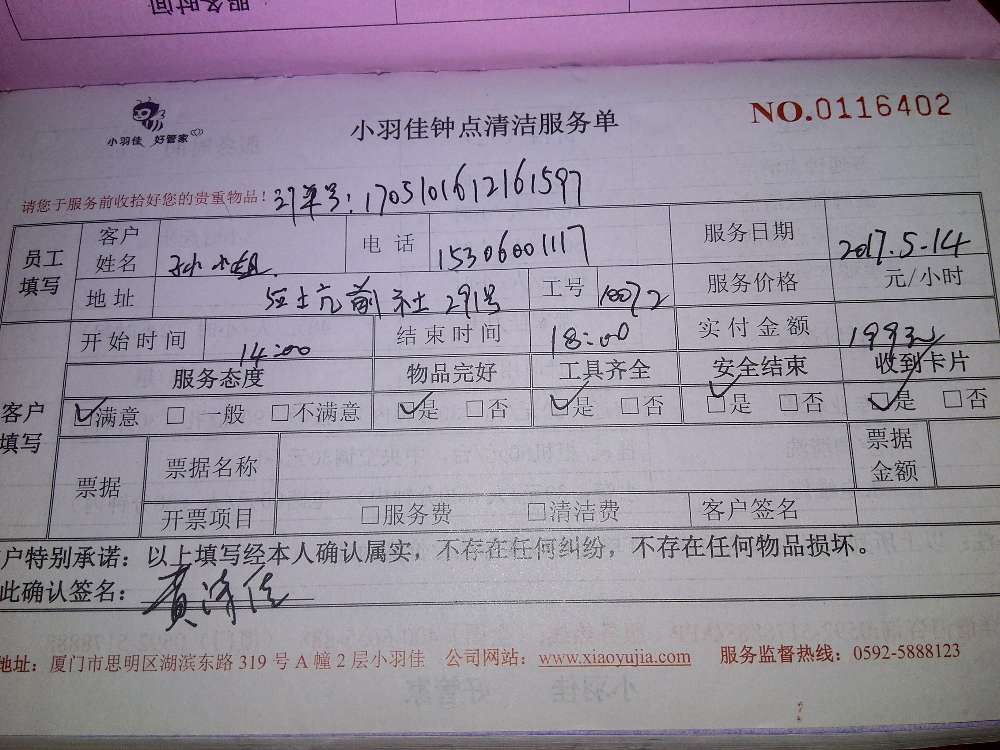 服务时间
小羽佳 好管家
小羽佳钟点清洁服务单
NO.0116402
请您于服务前收拾好您的贵重物品！订单号：1705101612161597
员工填写 客户姓名 孙小姐 电话 15306001117 服务日期 2017.5.14
地址 前社291号 工号 10072 服务价格 元/小时
开始时间 14:00 结束时间 18:00 实付金额
客户填写 服务态度 物品完好 工具齐全 安全结束 收到卡片
☑满意 □一般 □不满意 ☑是 □否 ☑是 □否 ☑是 □否 ☑是 □否
票据 票据名称 票据金额
开票项目 □服务费 □清洁费 客户签名
户特别承诺：以上填写经本人确认属实，不存在任何纠纷，不存在任何物品损坏。
此确认签名：
地址：厦门市思明区湖滨东路319号A幢2层小羽佳 公司网站：www.xiaoyujia.com 服务监督热线：0592-5888123